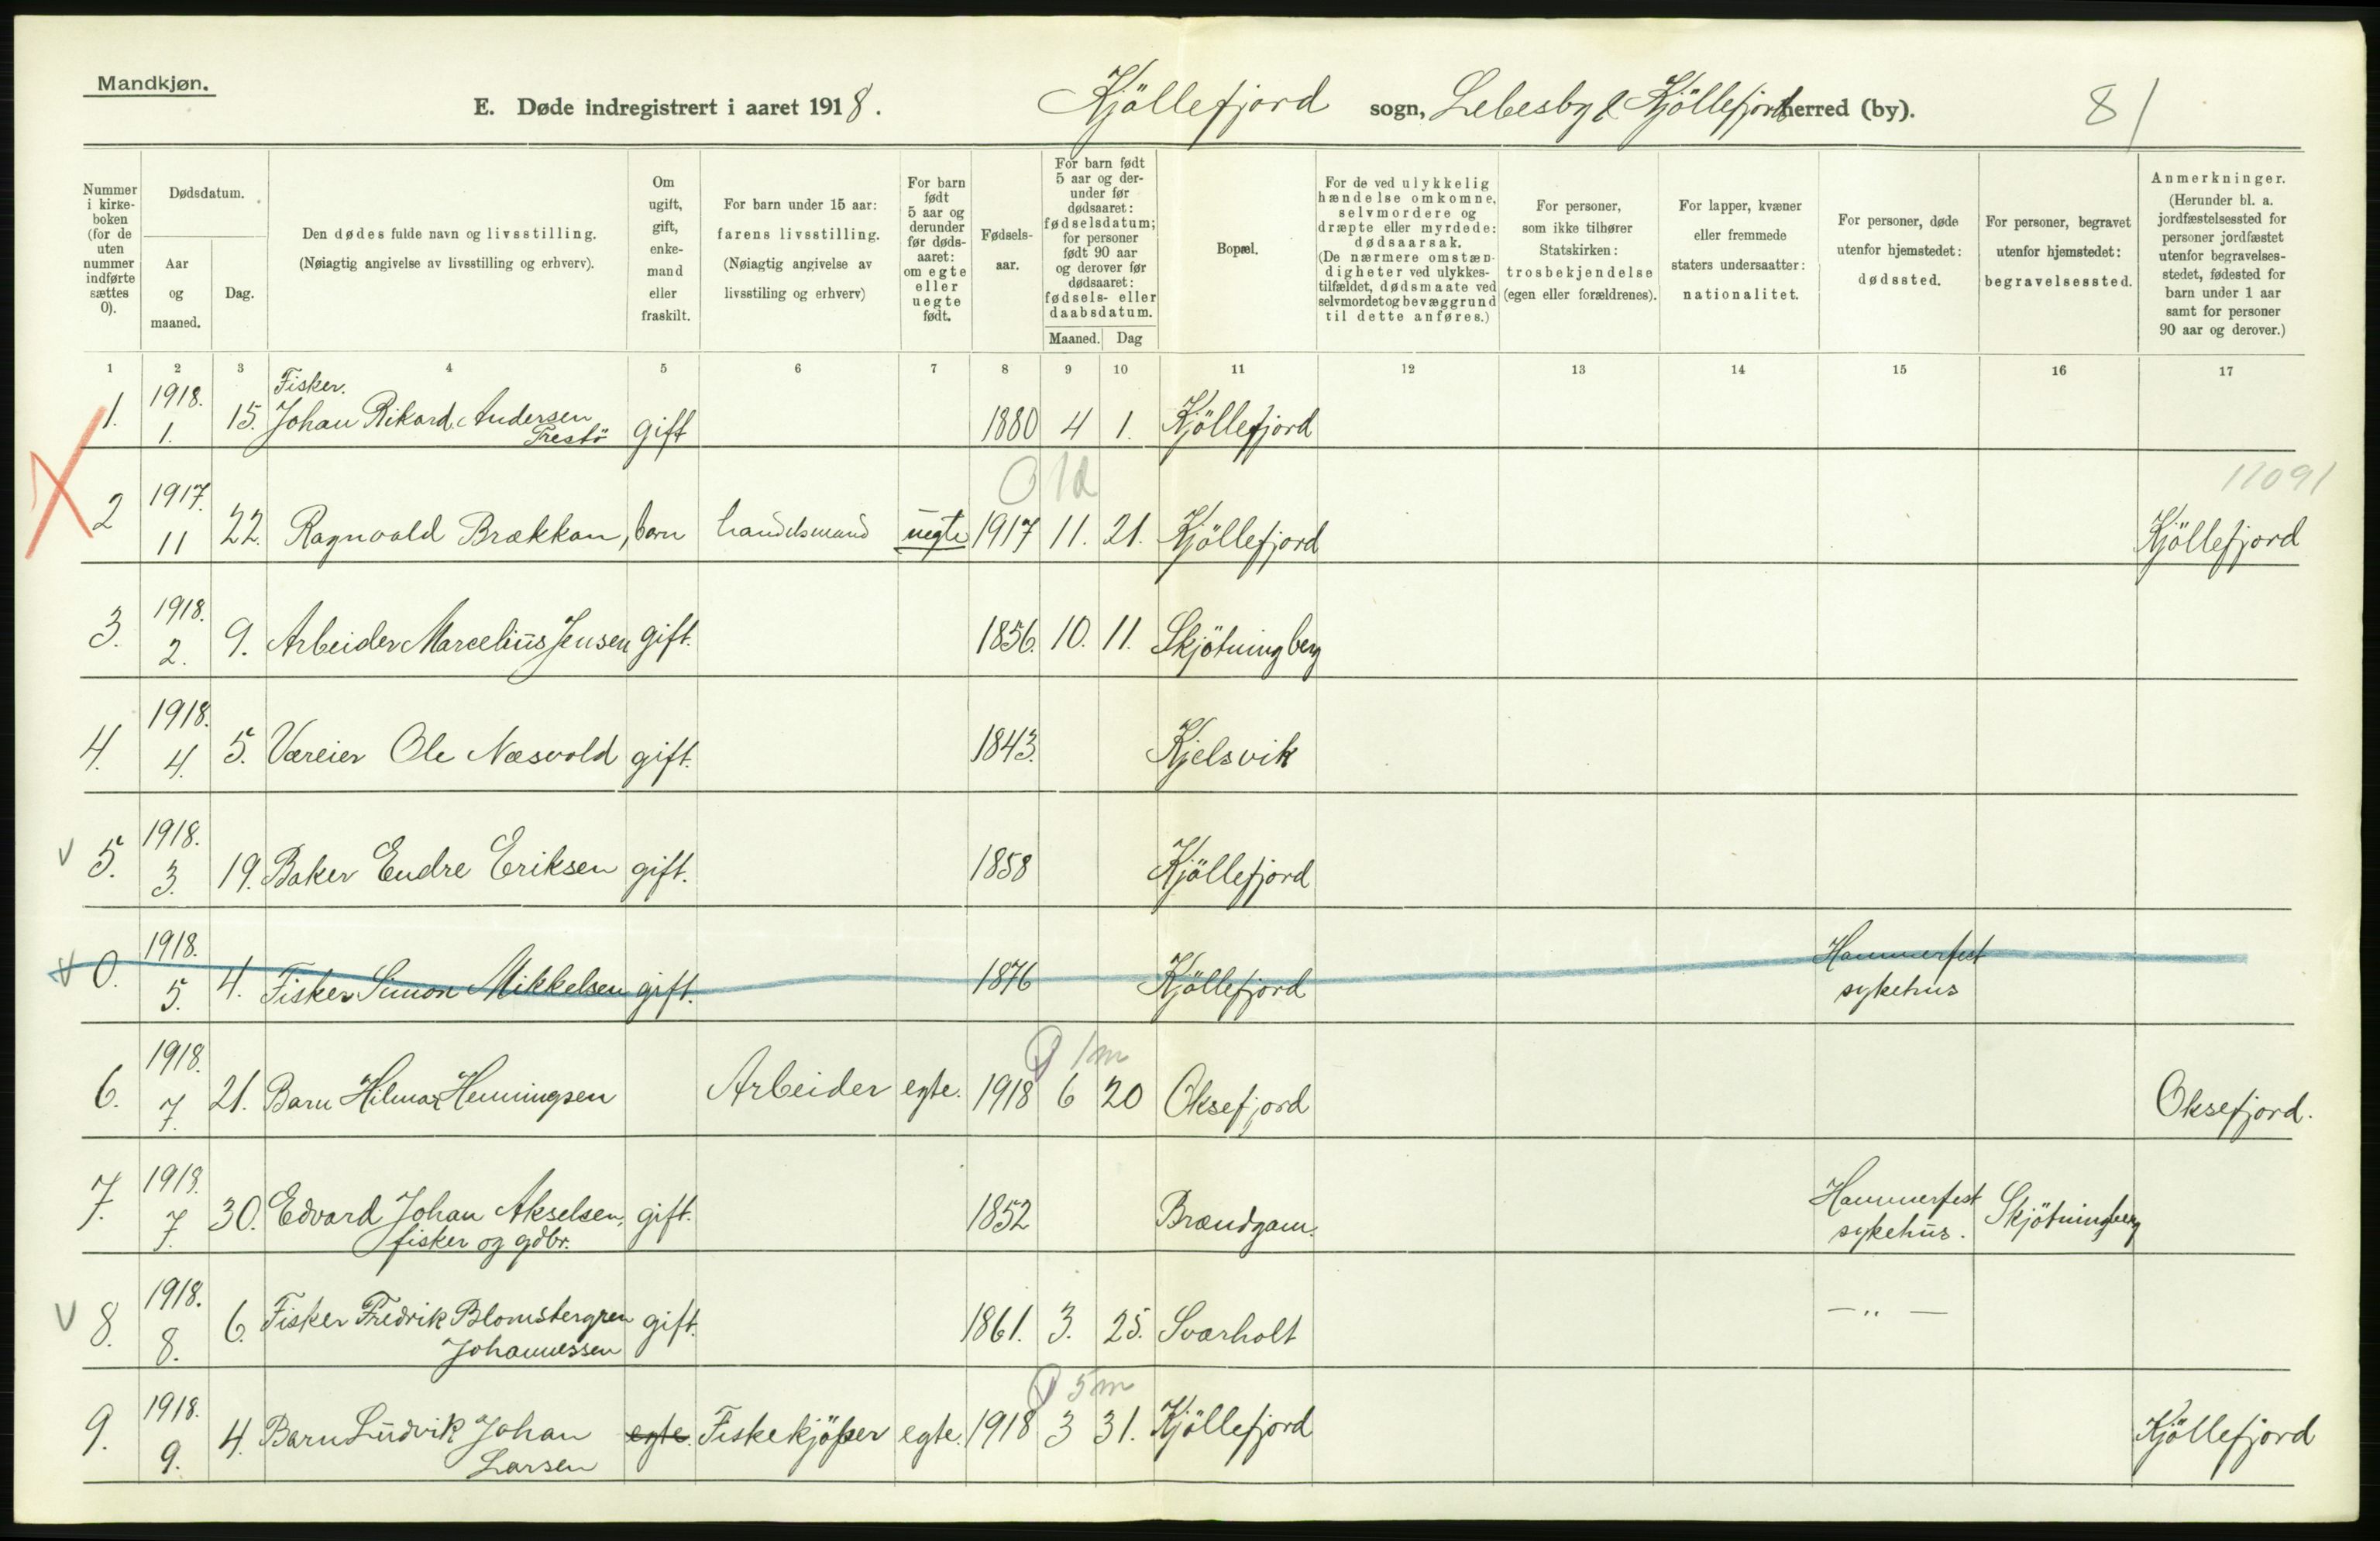 Mandkjøn.
E. Døde indregistrert i aaret 1918. Kjöllefjord sogn, Lebesby & Kjöllefjord herred (by). 81
Nummer i kirke-boken (for de uten nummer indførte sættes 0).
Dødsdatum.
Aar og maaned.
Dag.
Den dødes fulde navn og livsstilling.
(Nøiagtig angivelse av livsstilling og erhverv).
Om ugift, gift, enke-mand eller fraskilt.
For barn under 15 aar:
farens livsstilling.
(Nøiagtig angivelse av livsstiling og erhverv)
For barn født 5 aar og derunder før døds-aaret: om egte eller uegte født.
Fødsels-aar.
For barn født 5 aar og der-under før dødsaaret: fødselsdatum; for personer født 90 aar og derover før dødsaaret: fødsels- eller daabsdatum.
Maaned. Dag
Bopæl.
For de ved ulykkelig hændelse omkomne, selvmordere og dræpte eller myrdede: dødsaarsak. (De nærmere omstæn-digheter ved ulykkes-tilfældet, dødsmaate ved selvmordet og bevæggrund til dette anføres.)
For personer, som ikke tilhører Statskirken: trosbekjendelse (egen eller forældrenes).
For lapper, kvæner eller fremmede staters undersaatter: nationalitet.
For personer, døde utenfor hjemstedet: dødssted.
For personer, begravet utenfor hjemstedet: begravelsessted.
Anmerkninger.
(Herunder bl. a. jordfæstelsessted for personer jordfæstet utenfor begravelses-stedet, fødested for barn under 1 aar samt for personer 90 aar og derover.)
1 2 3 4 5 6 7 8 9 10 11 12 13 14 15 16 17
1. 1918. 1. 15. Fisker. Johan Rikard Andersen gift 1880 4 1. Kjöllefjord
0 1d 11091
2 1917. 11 22. Ragnvald Brækkan, barn handelsmand uegte 1917 11. 21. Kjöllefjord Kjöllefjord
3. 1918. 2. 9. Arbeider Marcelius Jensen gift. 1856. 10. 11. Skjötningberg
4. 1918. 4. 5. Væreier Ole Næsvold gift. 1843. Kjelsvik
v 5. 1918. 3. 19. Baker Endre Eriksen gift. 1858 Kjöllefjord
v 0. 1918. 5. 4. Fisker Simon Mikkelsen gift. 1876 Kjöllefjord Hammerfest sykehus
0 1m
6. 1918. 7. 21. Barn Hilmar Henningsen Arbeider egte. 1918 6 20 Oksefjord Oksefjord.
7. 1918. 7. 30. Edvard Johan Akselsen, fisker og gdbr. gift. 1852 Brændgam. Hammerfest sykehus. Skjötningberg
v 8. 1918. 8. 6. Fisker Fredrik Blomstergren Johannessen gift. 1861. 3. 25. Sværholt — " —
0 5m
9. 1918. 9. 4. Barn Ludvik Johan Larsen egte. Fiskekjöper egte. 1918 3 31. Kjöllefjord Kjöllefjord